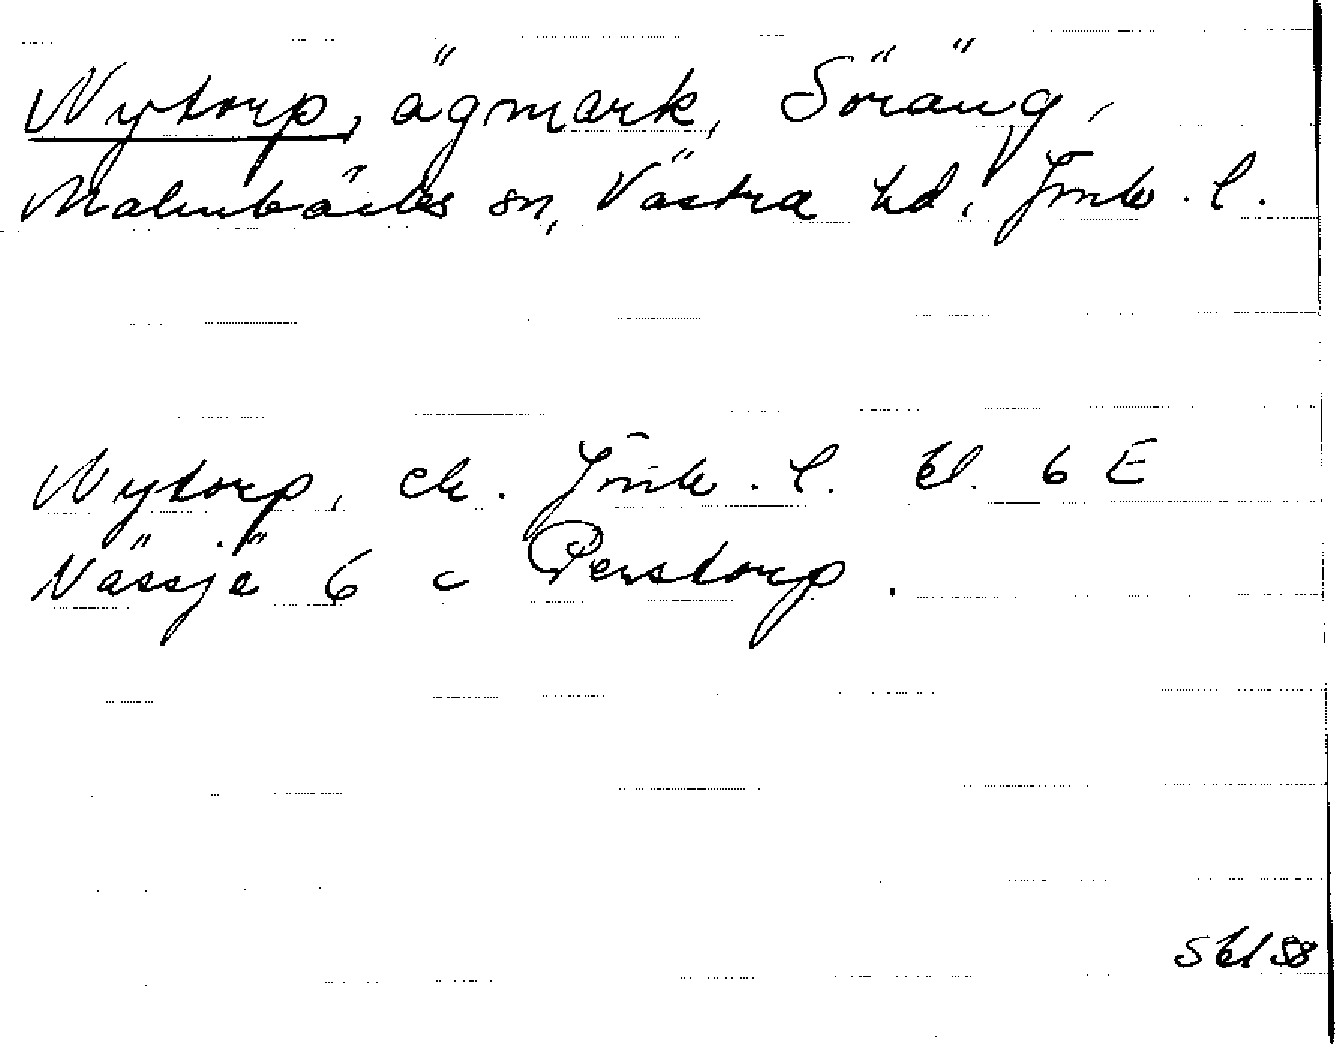 Nytorp, ägmark, Söräng,
Malmbäcks sn, Västra hd, Jmk. l.
Nytorp, ek. Jmk. l. bl. 6 E
Nässjö 6 c Perstorp.
S bl 58